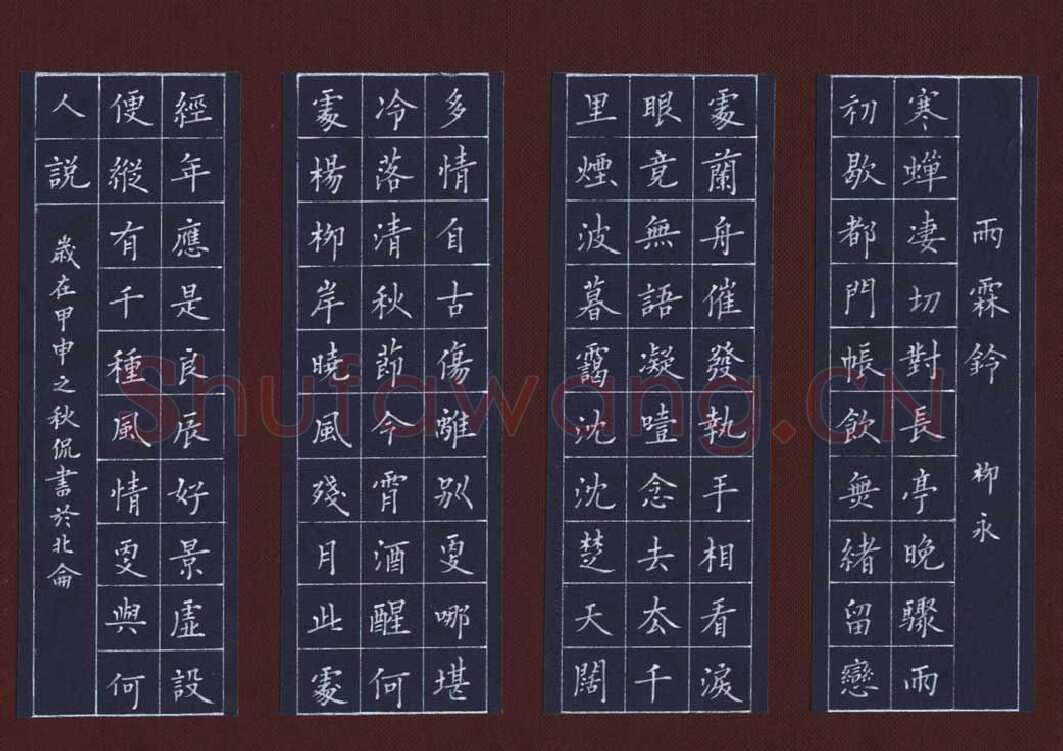 雨霖鈴 柳永
寒蟬凄切對長亭晚驟雨
初歇都門帳飲無緒留戀
處蘭舟催發執手相看淚
眼竟無語凝噎念去去千
里煙波暮靄沈沈楚天闊
多情自古傷離別更哪堪
冷落清秋節今宵酒醒何
處楊柳岸曉風殘月此處
經年應是良辰好景虛設
便縱有千種風情更與何
人説
歲在甲申之秋侃書於北侖
Shufawang.CN